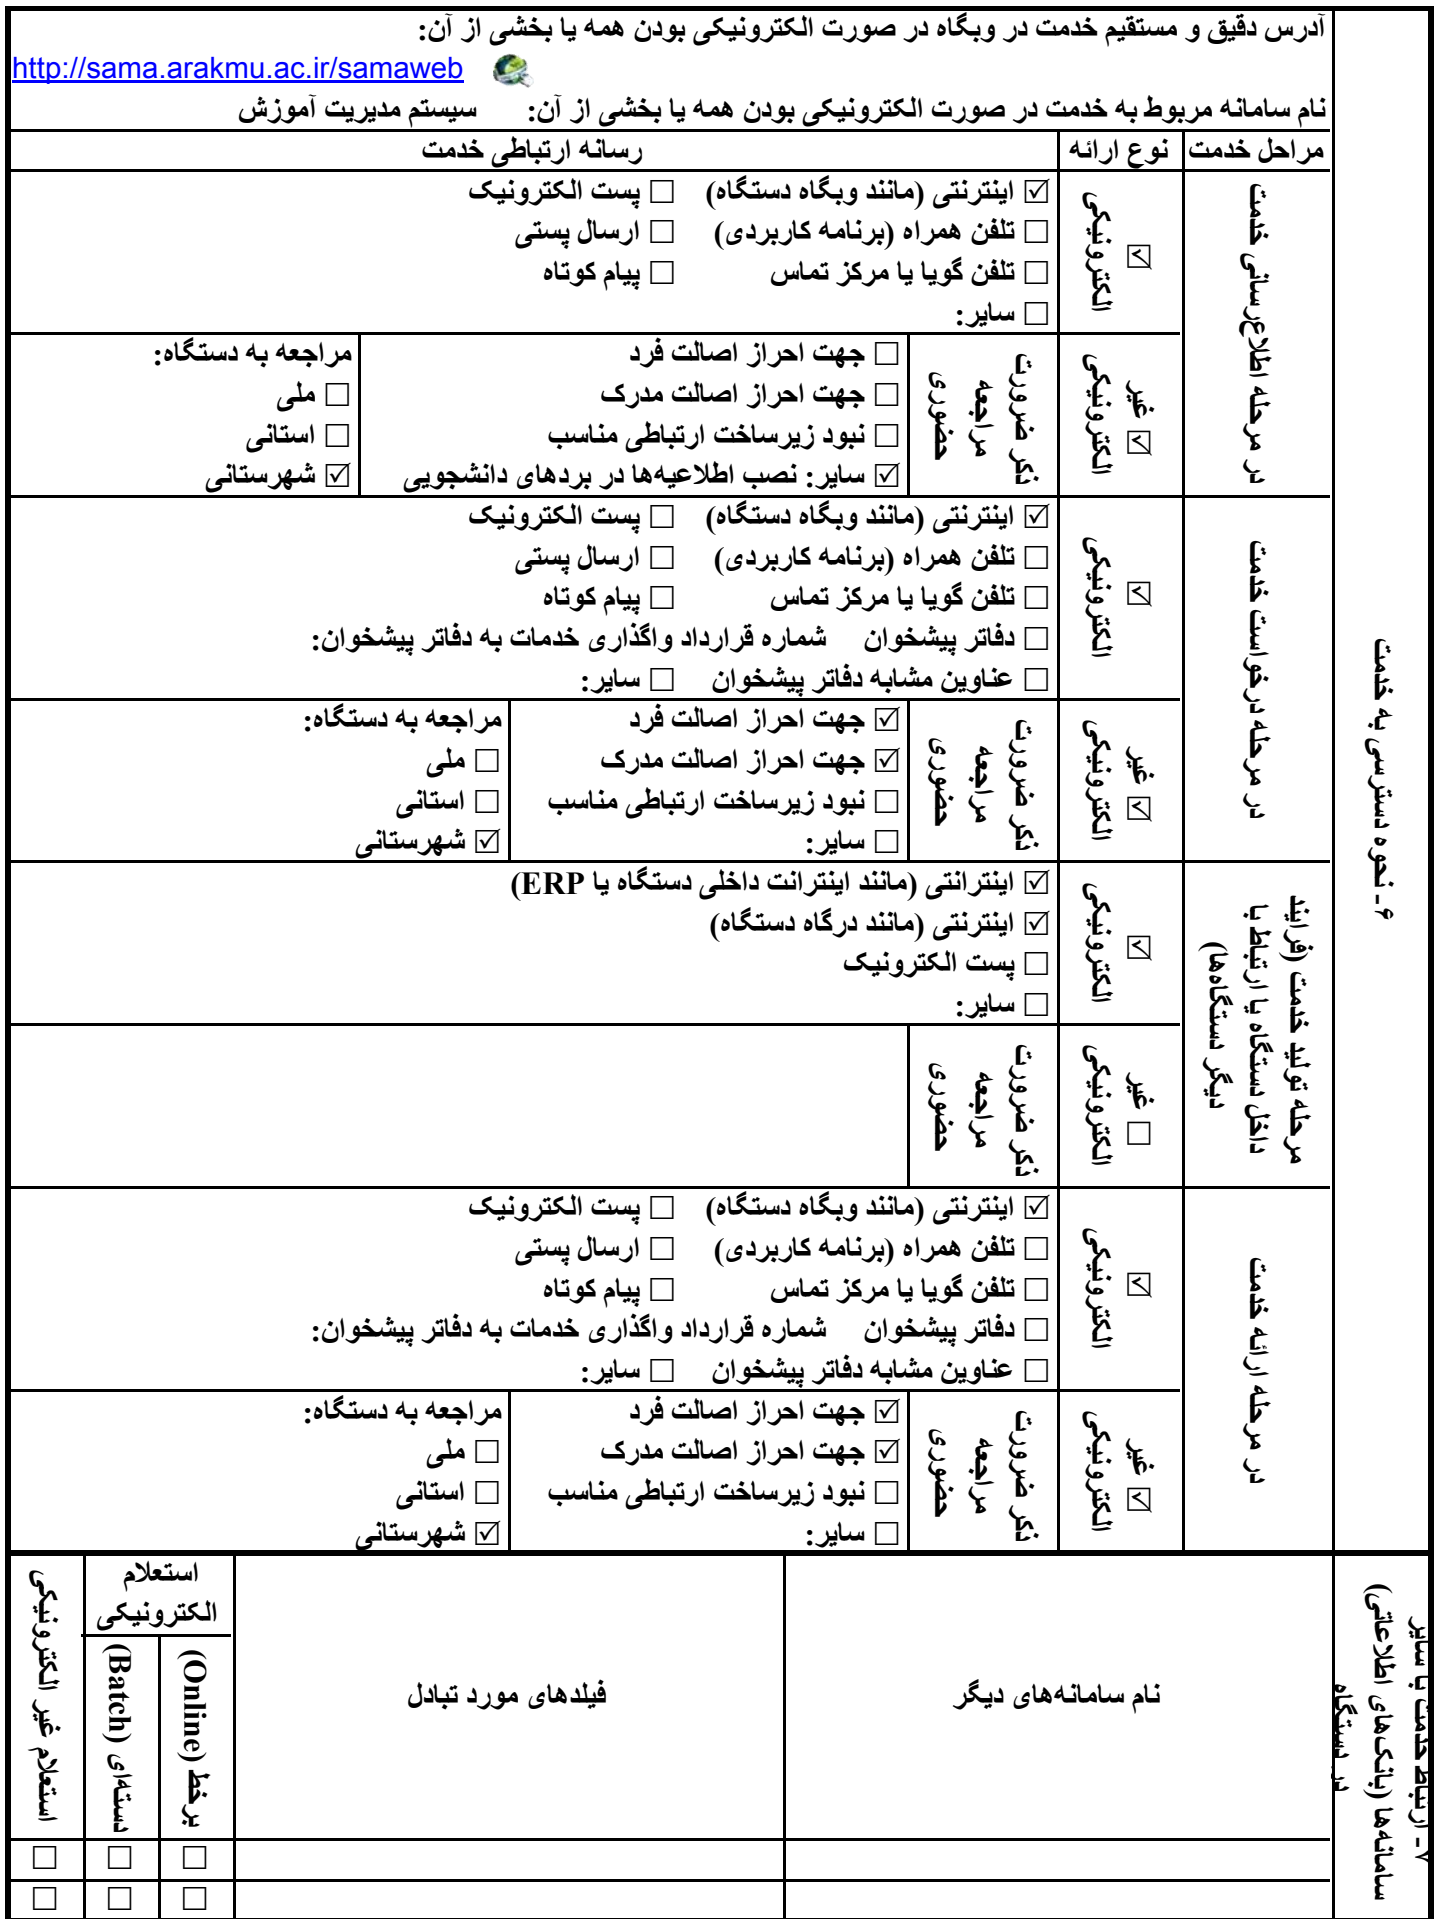 آدرس دقیق و مستقیم خدمت در وبگاه در صورت الکترونیکی بودن همه یا بخشی از آن:
http://sama.arakmu.ac.ir/samaweb
نام سامانه مربوط به خدمت در صورت الکترونیکی بودن همه یا بخشی از آن: سیستم مدیریت آموزش
مراحل خدمت نوع ارائه رسانه ارتباطی خدمت
۶ـ نحوه دسترسی به خدمت
در مرحله اطلاع‌رسانی خدمت
☑ الکترونیکی
☑ اینترنتی (مانند وبگاه دستگاه) ☐ پست الکترونیک
☐ تلفن همراه (برنامه کاربردی) ☐ ارسال پستی
☐ تلفن گویا یا مرکز تماس ☐ پیام کوتاه
☐ سایر:
☑ غیر
الکترونیکی
ذکر ضرورت
مراجعه
حضوری
☐ جهت احراز اصالت فرد
☐ جهت احراز اصالت مدرک
☐ نبود زیرساخت ارتباطی مناسب
☑ سایر: نصب اطلاعیه‌ها در بردهای دانشجویی
مراجعه به دستگاه:
☐ ملی
☐ استانی
☑ شهرستانی
در مرحله درخواست خدمت
☑ الکترونیکی
☑ اینترنتی (مانند وبگاه دستگاه) ☐ پست الکترونیک
☐ تلفن همراه (برنامه کاربردی) ☐ ارسال پستی
☐ تلفن گویا یا مرکز تماس ☐ پیام کوتاه
☐ دفاتر پیشخوان شماره قرارداد واگذاری خدمات به دفاتر پیشخوان:
☐ عناوین مشابه دفاتر پیشخوان ☐ سایر:
☑ غیر
الکترونیکی
ذکر ضرورت
مراجعه
حضوری
☑ جهت احراز اصالت فرد
☑ جهت احراز اصالت مدرک
☐ نبود زیرساخت ارتباطی مناسب
☐ سایر:
مراجعه به دستگاه:
☐ ملی
☐ استانی
☑ شهرستانی
مرحله تولید خدمت (فرایند
داخل دستگاه یا ارتباط با
دیگر دستگاه‌ها)
☑ الکترونیکی
☑ اینترانتی (مانند اینترانت داخلی دستگاه یا ERP)
☑ اینترنتی (مانند درگاه دستگاه)
☐ پست الکترونیک
☐ سایر:
☐ غیر
الکترونیکی
ذکر ضرورت
مراجعه
حضوری
در مرحله ارائه خدمت
☑ الکترونیکی
☑ اینترنتی (مانند وبگاه دستگاه) ☐ پست الکترونیک
☐ تلفن همراه (برنامه کاربردی) ☐ ارسال پستی
☐ تلفن گویا یا مرکز تماس ☐ پیام کوتاه
☐ دفاتر پیشخوان شماره قرارداد واگذاری خدمات به دفاتر پیشخوان:
☐ عناوین مشابه دفاتر پیشخوان ☐ سایر:
☑ غیر
الکترونیکی
ذکر ضرورت
مراجعه
حضوری
☑ جهت احراز اصالت فرد
☑ جهت احراز اصالت مدرک
☐ نبود زیرساخت ارتباطی مناسب
☐ سایر:
مراجعه به دستگاه:
☐ ملی
☐ استانی
☑ شهرستانی
۷ـ ارتباط خدمت با سایر
سامانه‌ها (بانک‌های اطلاعاتی)
در دستگاه
نام سامانه‌های دیگر
فیلدهای مورد تبادل
استعلام
الکترونیکی
برخط (Online)
دسته‌ای (Batch)
استعلام غیر الکترونیکی
☐ ☐ ☐
☐ ☐ ☐